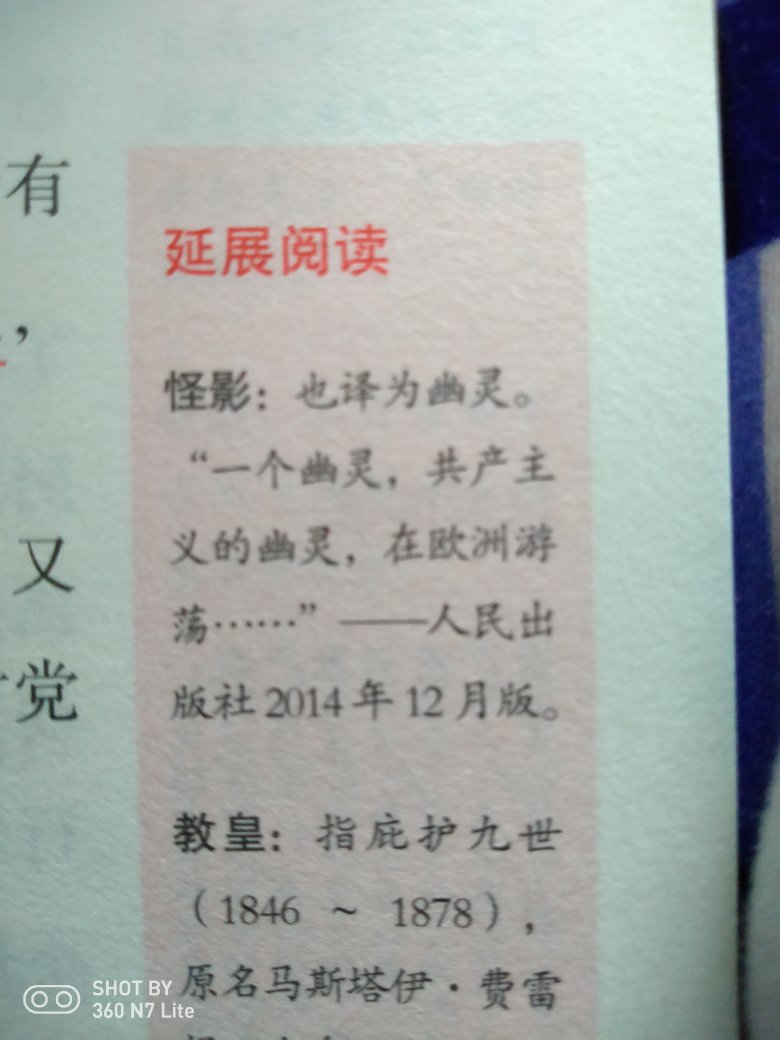 有
延展阅读
怪影：也译为幽灵。
“一个幽灵，共产主
义的幽灵，在欧洲游
荡……”——人民出
又
版社2014年12月版。
党
教皇：指庇护九世
（1846 ~ 1878），
原名马斯塔伊·费雷
SHOT BY
360 N7 Lite